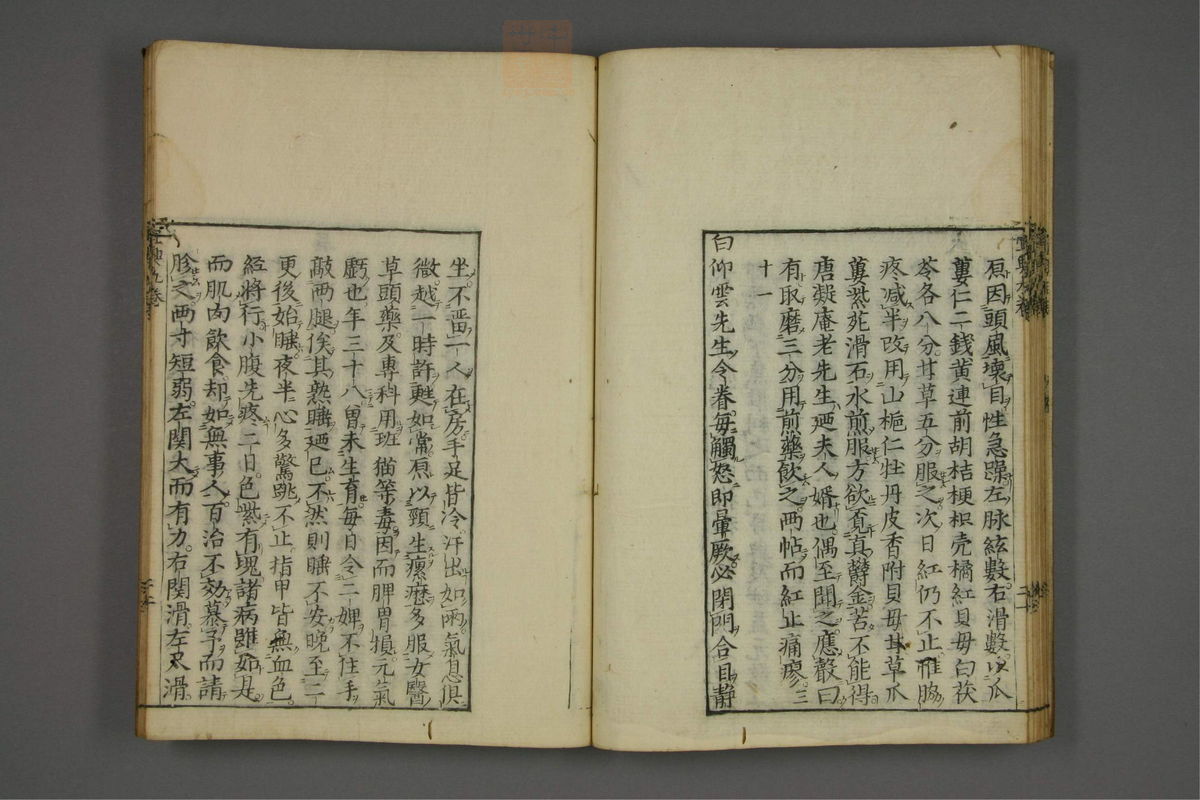 原因頭風壞目性急躁左脉絃數右滑數以瓜
蔞仁二錢黄連前胡桔梗枳壳橘紅貝母白茯
苓各八分甘草五分服之次日紅仍不止惟脇
疼减半改用山梔仁牡丹皮香附貝母甘草瓜
蔞紫苑滑石水煎服方欲覓真欝金苦不能得
唐凝庵老先生廼夫人婿也偶至聞之應聲曰
有取磨三分用煎藥飲之兩帖而紅止痛瘳三
十一
白仰雲先生令眷每觸怒即暈厥必閉門合目静
坐不畱一人在房手足皆冷汗出如雨氣息俱
微越一時許甦如常原以頸生瘰癧多服女醫
草頭藥及專科用班猫等毒因而脾胃損元氣
虧也年三十八曾未生育每日令二婢不住手
敲兩腿俟其熟睡廼已不然則睡不安晚至二
更後始瞎夜半心多驚跳不止指甲皆無血色
經將行小腹先疼二日色紫有塊諸病雖如是
而肌肉飲食却如無事人百治不効慕予而請
胗之兩寸短弱左関大而有力右関滑左尺滑